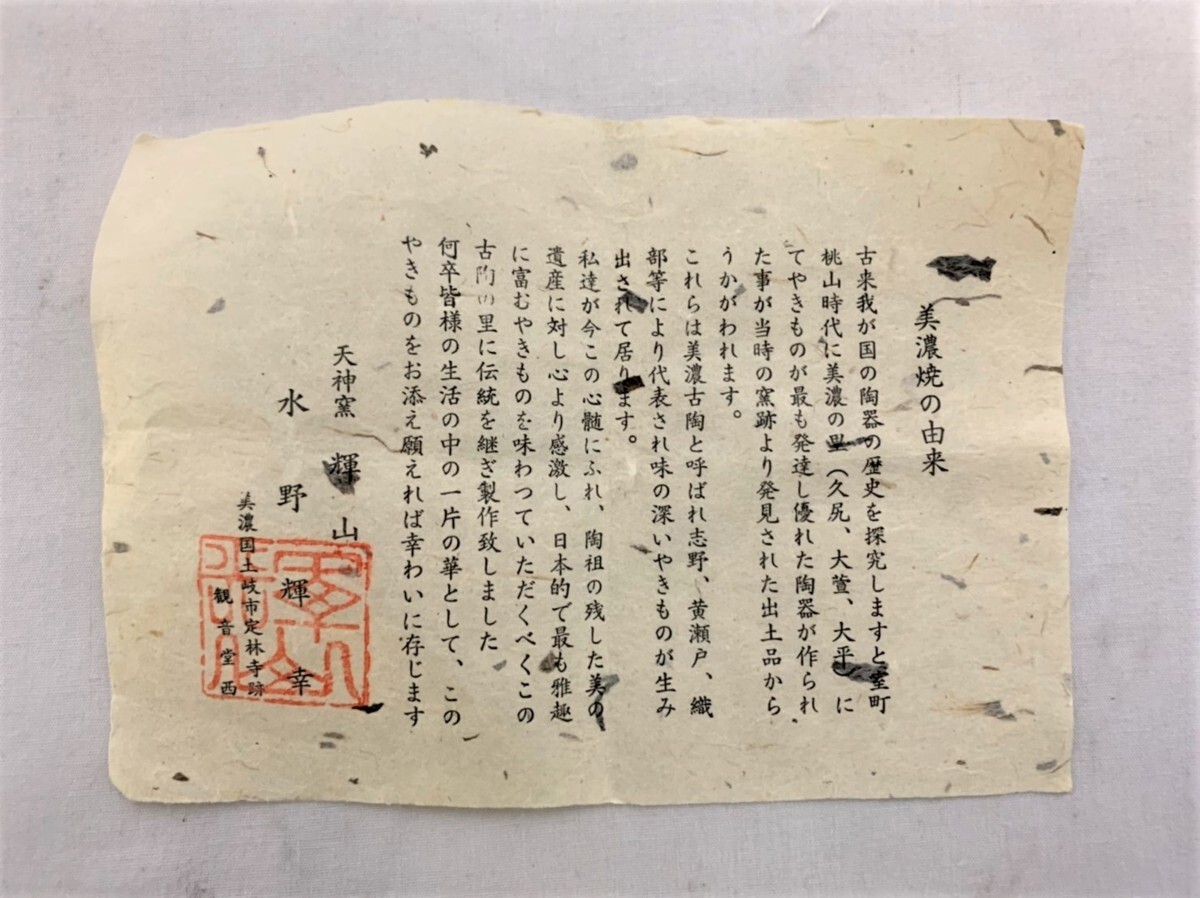 美濃焼の由来
古来我が国の陶器の歴史を探究しますと室町
桃山時代に美濃の里（久尻、大萱、大平）に
てやきものが最も発達し優れた陶器が作られ
た事が当時の窯跡より発見された出土品から
うかがわれます。
これらは美濃古陶と呼ばれ志野、黄瀬戸、織
部等により代表され味の深いやきものが生み
出されて居ります。
私達が今この心髄にふれ、陶祖の残した美の
遺産に対し心より感激し、日本的で最も雅趣
に富むやきものを味わつていただくべくこの
古陶の里に伝統を継ぎ製作致しました
何卒皆様の生活の中の一片の華として、この
やきものをお添え願えれば幸わいに存じます
天神窯 輝山
水野輝幸
美濃国土岐市定林寺跡
観音堂西